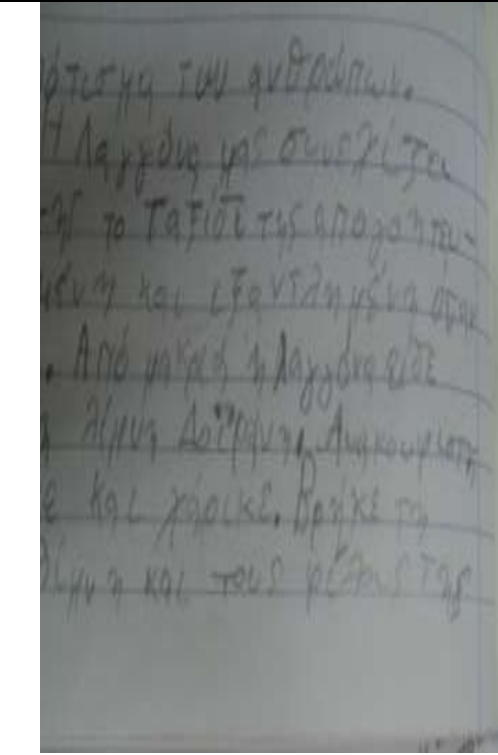 πότισμα των ανθρώπων.
Η Λαγγόνα μας συνεχίζει
της το ταξίδι της απογοητευ-
μένη και εξαντλημένη
. Από μακριά η λαγγόνα είδε
η λίμνη Δοϊράνη. Ανακουφιστη
ε και χάρικε. Βρήκε τη
λίμνη και τους φίλους της